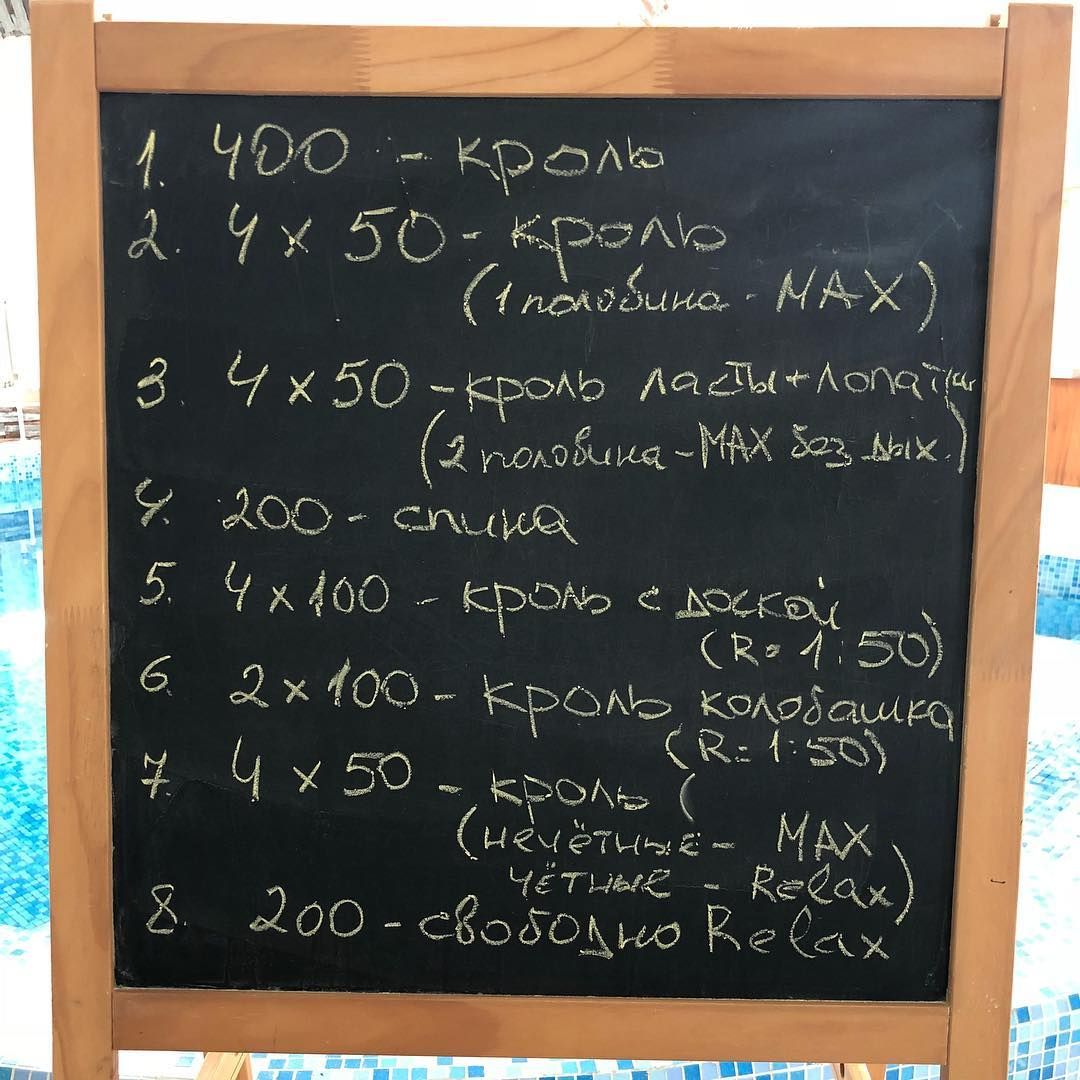 1. 400 - кроль
2. 4 x 50 - кроль
(1 половина - MAX)
3. 4 x 50 - кроль ласты + лопатки
(2 половина - MAX без дых.)
4. 200 - спина
5. 4 x 100 - кроль с доской
(R = 1:50)
6. 2 x 100 - кроль колобашка
(R = 1:50)
7. 4 x 50 - кроль (
(нечётные - MAX
чётные - Relax)
8. 200 - свободно Relax